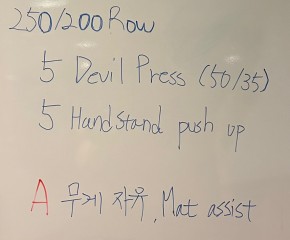 250/200 Row
5 Devil Press (50/35)
5 Hand stand push up
A 무게 자유, Mat assist